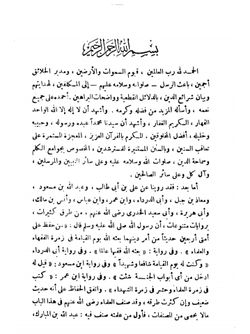 بسم الله الرحمن الرحيم
الحمد لله رب العالمين ، قيوم السموات والأرضين ، ومدبر الخلائق
أجمعين ، باعث الرسل ـ صلواته وسلامه عليهم ـ إلى المكلفين ، لهدايتهم
وبيان شرائع الدين ، بالدلائل القطعية وواضحات البراهين . أحمده على جميع
نعمه ، وأسأله المزيد من فضله وكرمه . وأشهد أن لا إله إلا الله الواحد
القهار ، الكريم الغفار ، وأشهد أن سيدنا محمداً عبده ورسوله ، وحبيبه
وخليله ، أفضل المخلوقين ، المكرم بالقرآن العزيز ، المعجزة المستمرة على
تعاقب السنين ، والسنن المستنيرة للمسترشدين ، المخصوص بجوامع الكلم
وسماحة الدين ، صلوات الله وسلامه عليه وعلى سائر النبيين والمرسلين ،
وآل كل وعلى سائر الصالحين .
أما بعد : فقد روينا عن علي بن أبي طالب ، وعبد الله بن مسعود ،
ومعاذ بن جبل ، وأبي الدرداء ، وابن عمر ، وابن عباس ، وأنس بن مالك ،
وأبي هريرة ، وأبي سعيد الخدري رضي الله عنهم ـ من طرق كثيرات ،
بروايات متنوعات ، أن رسول الله صلى الله عليه وسلم قال : « من حفظ على
أمتي أربعين حديثاً من أمر دينها بعثه الله يوم القيامة في زمرة الفقهاء
والعلماء » . وفي رواية « بعثه الله فقيهاً عالماً » . وفي رواية أبي الدرداء
« وكنت له يوم القيامة شافعاً وشهيداً » وفي رواية ابن مسعود « قيل له
ادخل من أي أبواب الجنة شئت » . وفي رواية ابن عمر « كتب
في زمرة العلماء وحشر في زمرة الشهداء » . واتفق الحفاظ على أنه حديث
ضعيف وإن كثرت طرقه . وقد صنف العلماء رضي الله عنهم في هذا الباب
مالا يحصى من المصنفات ، فأول من علمته صنف فيه : عبد الله بن المبارك ،